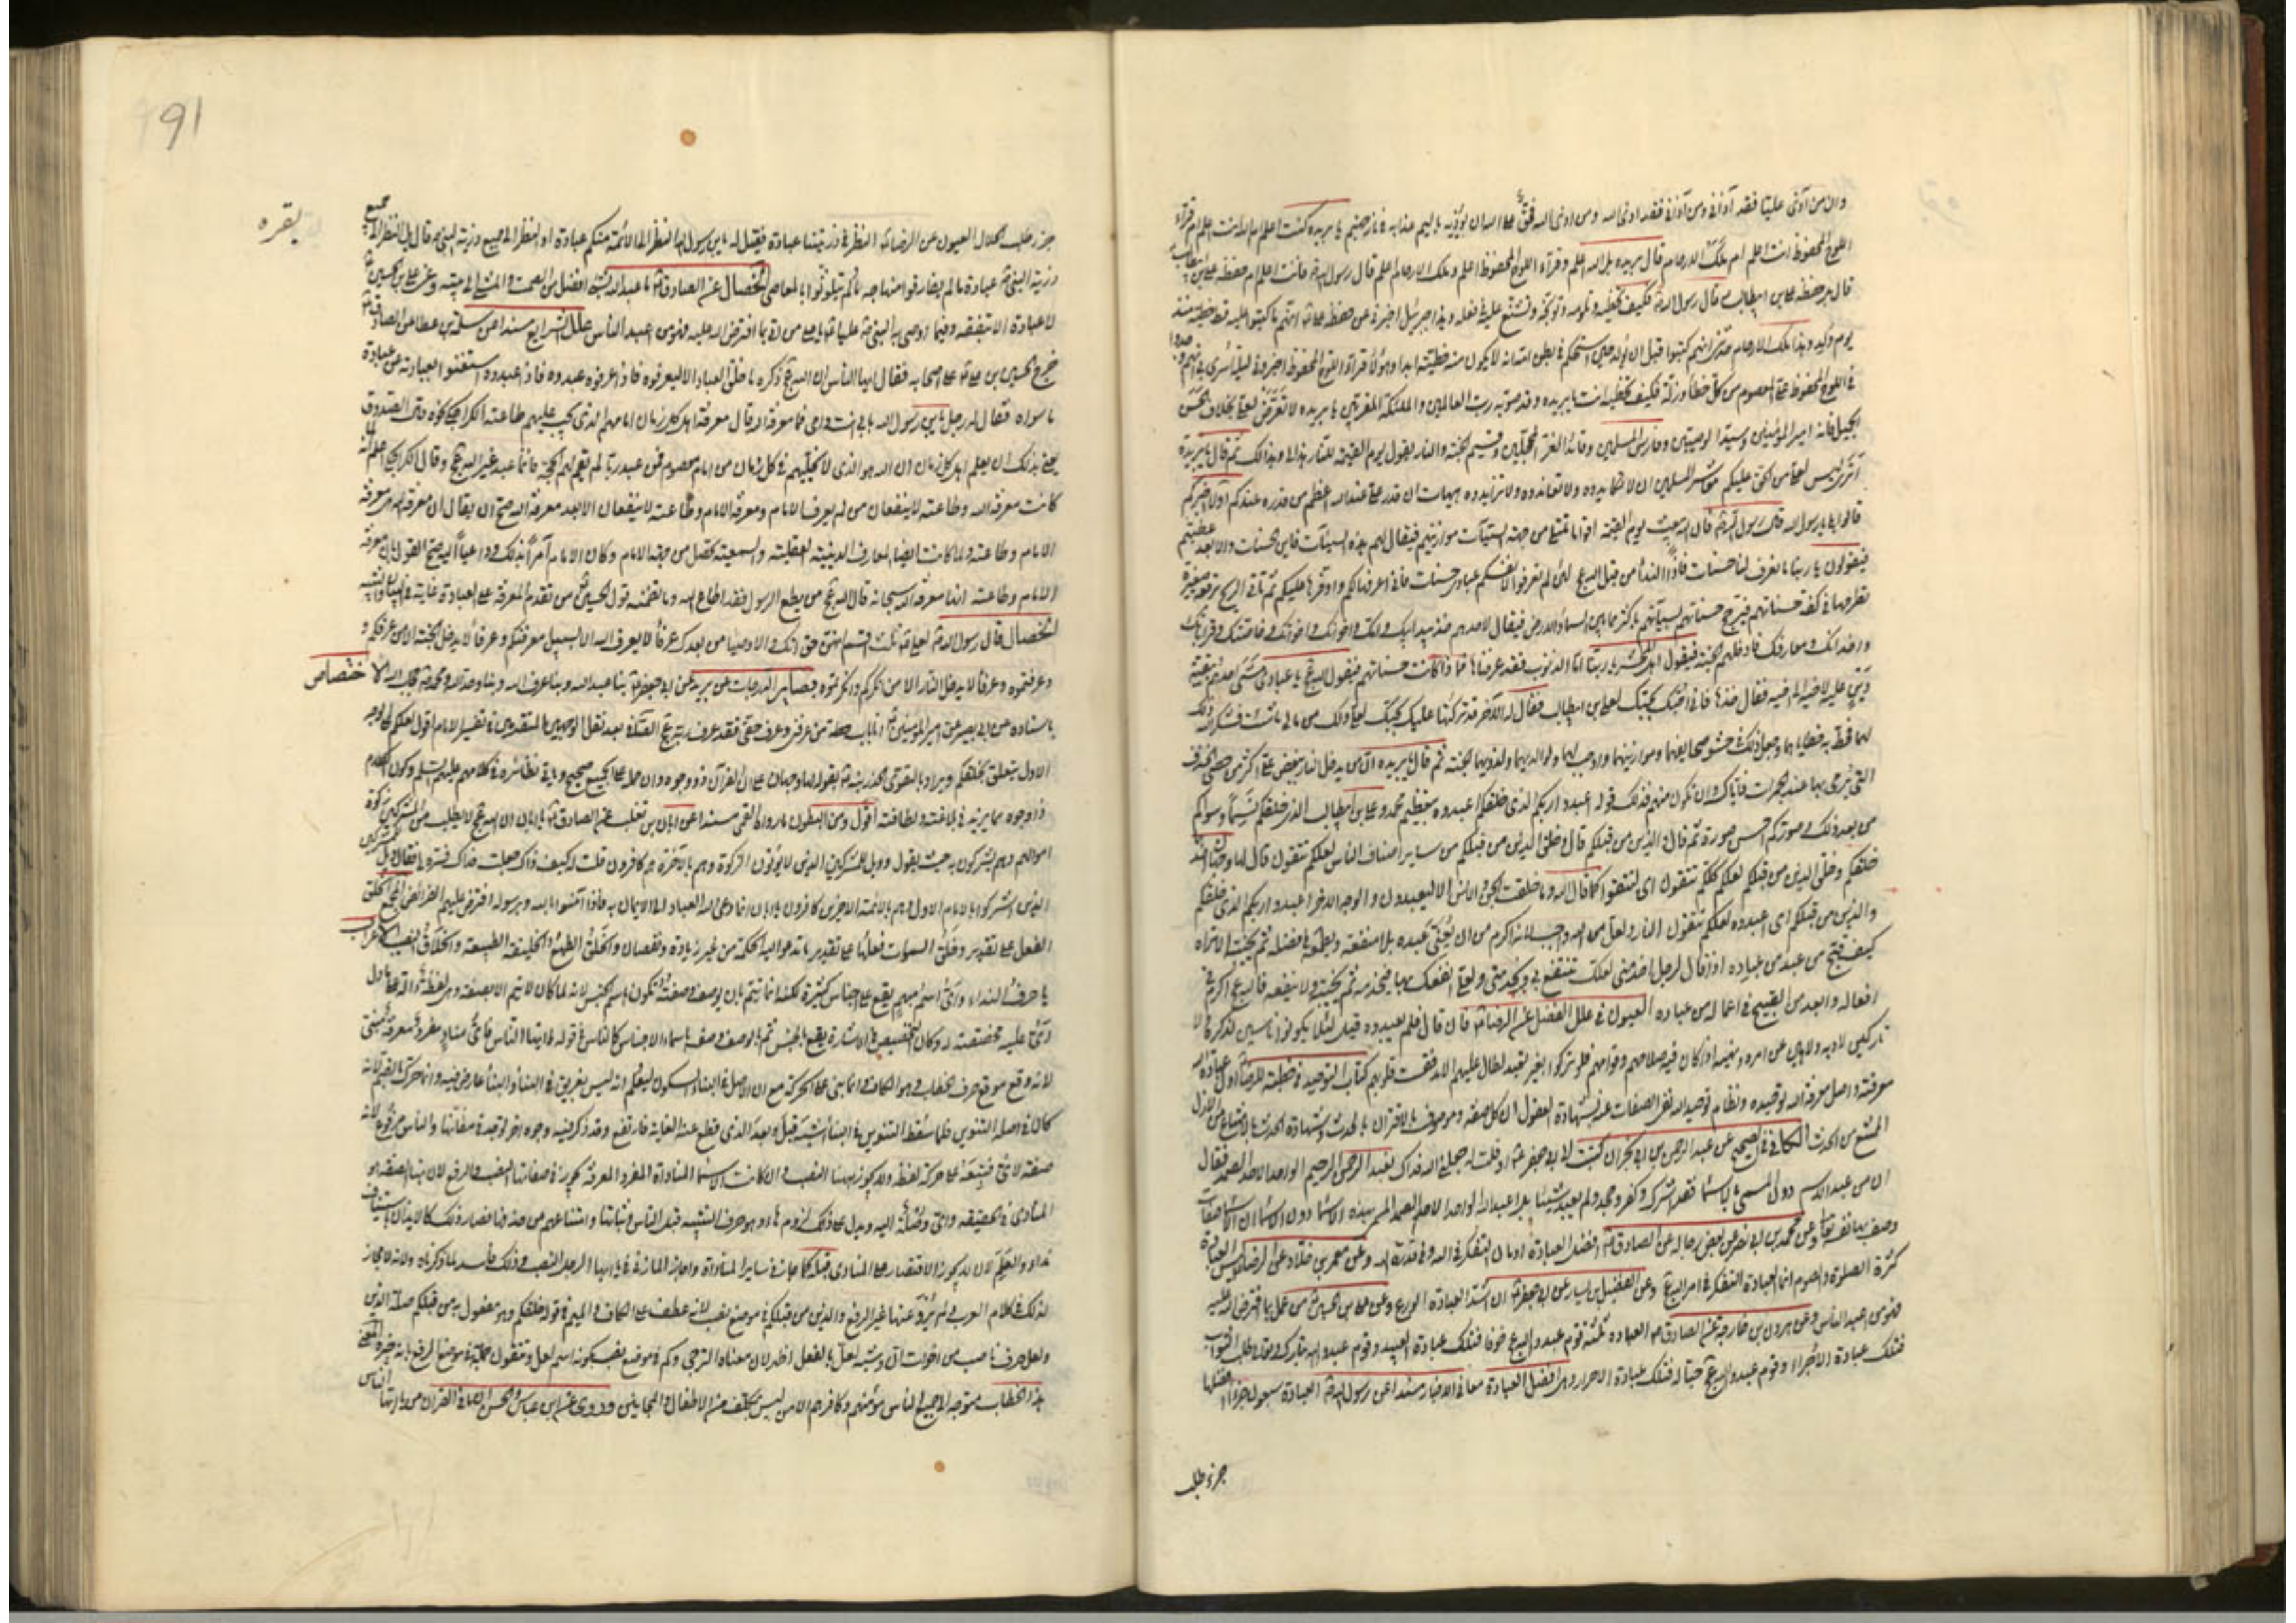 وان من آذى عليا فقد آذانى ومن آذانى فقد اذى الله ومن اذى الله فحق على الله ان يؤذيه باليم عذابه فى نار جهنم يا بريده كنت اعلم ام الله انت اعلم ام قراء
اللوح المحفوظ انت اعلم ام ملك الارحام قال بريده بل الله اعلم وقراء اللوح المحفوظ اعلم وملك الارحام اعلم قال رسول الله فانت اعلم ام حفظة على بن ابيطالب
قال بل حفظة على بن ابيطالب قال رسول الله فكيف تخطيه وتلومه وتوبخه وتشنع عليه فى فعله وهذا جبرئيل اخبرنى عن حفظة على انهم ما كتبوا عليه قط خطيئة منذ
يوم ولد وهذا ملك الارحام حدثنى انهم كتبوا قبل ان يولد حين استحكم فى بطن امه انه لا يكون منه خطيئة ابدا وهؤلاء قراء اللوح المحفوظ اخبرونى ليلة اسرى بى انهم وجدوا
فى اللوح المحفوظ على المعصوم من كل خطأ وزلة فكيف تخطيه انت يا بريده وقد صوبه رب العالمين والملئكة المقربين يا بريده لا تعرض لعلى بخلاف الحسن
الجميل فانه امير المؤمنين وسيد الوصيين وفارس المسلمين وقائد الغر المحجلين وقسيم الجنة والنار يقول يوم القيمة للنار هذا لى وهذا لك ثم قال يا بريدة
اترى ليس لعلى من الحق عليكم معاشر المسلمين ان لا تكايدوه ولا تعاندوه ولا تزايدوه هيهات ان قدر على عند الله اعظم من قدره عندكم اولا اخبركم
قالوا بلى يا رسول الله قال رسول الله فان الله يبعث يوم القيمة اقواما تمتلى من جهة السيئات موازينهم فيقال لهم هذه السيئات فاين الحسنات والا فقد عطبتم
فيقولون يا ربنا ما نعرف لنا حسنات فاذا النداء من قبل الله عج لئن لم تعرفوا لانفسكم عبادى حسنات فانى اعرفها لكم واوفرها عليكم ثم تأتى الريح برقعة صغيرة
تطرحها فى كفة حسناتهم فترجح حسناتهم بسيئاتهم باكثر مما بين السماء والارض فيقال لاحدهم خذ بيد ابيك وامك واخوانك واخواتك وخاصتك وقراباتك
واخدانك ومعارفك فادخلهم الجنة فيقول اهل المحشر يا ربنا اما الذنوب فقد عرفناها فما ذا كانت حسناتهم فيقول الله عج يا عبادى مشى احدهم ببقية
دين عليه لاخيه الى اخيه فقال خذها فانى احبك بحبك لعلى بن ابيطالب فقال له الآخر قد تركتها عليك بحبك لعلى ولك من مالى ما شئت فشكر الله ذلك
لهما فحط به خطاياهما وجعل ذلك فى حشو صحايفهما وموازينهما واوجب لهما ولوالديهما ولذريتهما الجنة ثم قال يا بريده ان من يدخل النار ببغض على اكثر من حصى الخذف
التى يرمى بها عند الجمرات فاياك وان تكون منهم فذلك قوله اعبدوا ربكم الذى خلقكم اعبدوه بتعظيم محمد وعلى بن ابيطالب الذى خلقكم نسما وسواكم
من بعد ذلك وصوركم احسن صورة ثم قال والذين من قبلكم قال وخلق الذين من قبلكم من ساير اصناف الناس لعلكم تتقون قال لها وجهان احدهما
خلقكم وخلق الذين من قبلكم لعلكم كلكم تتقون اى لتتقوا كما قال الله وما خلقت الجن والانس الا ليعبدون والوجه الاخر اعبدوا ربكم الذى خلقكم
والذين من قبلكم اى اعبدوه لعلكم تتقون النار ولعل من الله واجب لانه اكرم من ان يعنى عبده بلا منفعة ويطمعه فى فضله ثم يخيبه الا تراه
كيف قبح من عبد من عباده اذا قال لرجل اخدمنى لعلك تنتفع بى وبخدمتى ولعلى انفعك بها فيخدمه ثم يخيبه ولا ينفعه فالله عج اكرم فى
افعاله وابعد من القبيح فى اعماله من عباده العيون فى علل الفضل عن الرضا فان قال فلم يعبدوه قيل لئلا يكونوا ناسين لذكره ولا
تاركين لادبه ولا لاهين عن امره ونهيه اذا كان فيه صلاحهم وقوامهم فلو تركوا بغير تعبد لطال عليهم الامد فقست قلوبهم كتاب التوحيد فى خطبة للرضا اول عبادة الله
معرفته واصل معرفة الله توحيده ونظام توحيد الله نفى الصفات عنه بشهادة العقول ان كل صفة وموصوف بالاقتران بالحدث وشهادة الحدث بالامتناع من الازل
الممتنع من الحدث الكافى فى الصحيح عن عبد الرحمن بن ابى نجران كتبت الى ابى جعفر او قلت له جعلنى الله فداك نعبد الرحمن الرحيم الواحد الاحد الصمد فقال
ان من عبد الاسم دون المسمى بالاسماء فقد اشرك وكفر وجحد ولم يعبد شيئا بل اعبد الله الواحد الاحد الصمد المسمى بهذه الاسماء دون الاسماء ان الاسماء صفات
وصف بها نفسه تعالى وعن محمد بن ابى نصر عن بعض رجاله عن الصادق افضل العبادة ادمان التفكر فى الله وفى قدرته وعن معمر بن خلاد عن الرضا ليس العبادة
كثرة الصلوة والصوم انما العبادة التفكر فى امر الله عج وعن الفضيل بن يسار عن ابى جعفر ان اشد العبادة الورع وعن على بن الحسين من عمل بما افترض الله عليه
فهو من اعبد الناس وعن هرون بن خارجة عن الصادق العباده ثلثة قوم عبدوا الله عج خوفا فتلك عبادة العبيد وقوم عبدوا الله تبارك وتعالى طلب الثواب
فتلك عبادة الاجراء وقوم عبدوا الله عج حبا له فتلك عبادة الاحرار وهى افضل العبادة معانى الاخبار مسندا عن رسول الله العبادة سبعون جزءا افضلها
جزء طلب
91
بقره
جزء طلب الحلال العيون عن الرضا النظر الى ذريتنا عبادة فقيل له يا بن رسول الله النظر الى الائمة منكم عبادة او النظر الى جميع ذرية النبى قال بل النظر الى جميع
ذرية النبى عبادة ما لم يفارقوا منهاجه ولم يتلوثوا بالمعاصى الخصال عن الصادق ما عبد الله بشئ افضل من الصمت والمشى الى بيته وعن على بن الحسين
لا عبادة الا بتفقه وفيما اوصى به النبى عليا يا على من اتى بما افترض الله عليه فهو من اعبد الناس علل الشرايع مسندا عن سلمة بن عطا عن الصادق
خرج الحسين بن على على اصحابه فقال ايها الناس ان الله عج ذكره ما خلق العباد الا ليعرفوه فاذا عرفوه عبدوه فاذا عبدوه استغنوا بعبادته عن عبادة
ما سواه فقال له رجل يا بن رسول الله بابى انت وامى فما معرفة الله قال معرفة اهل كل زمان امامهم الذى يجب عليهم طاعته الكراجكى نحوه وقال الصدوق
يعنى بذلك ان يعلم اهل كل زمان ان الله هو الذى لا يخليهم فى كل زمان من امام معصوم فمن عبد ربا لم يقم لهم الحجة فانما عبد غير الله عج وقال الكراجكى اعلم انه لما
كانت معرفة الله وطاعته لا ينفعان من لم يعرف الامام ومعرفة الامام وطاعته لا ينفعان الا بعد معرفة الله صح ان يقال ان معرفة الله هى معرفة
الامام وطاعته ولما كانت ايضا المعارف الدينية العقلية والسمعية تحصل من جهة الامام وكان الامام آمرا بذلك وداعيا اليه صح القول بان معرفة
الامام وطاعته انها معرفة الله سبحانه قال الله عج من يطع الرسول فقد اطاع الله وما تضمنه قول الحسين من تقدم المعرفة على العبادة غاية فى البيان والتنبيه
الخصال قال رسول الله لعلى ثلث اقسم انهن حق انك والاوصياء من بعدك عرفاء لا يعرف الله الا بسبيل معرفتكم وعرفاء لا يدخل الجنة الا من عرفكم و
وعرفتموه وعرفاء لا يدخل النار الا من انكركم وانكرتموه بصاير الدرجات عن بريد عن ابى جعفر بنا عبد الله وبنا عرف الله وبنا وحد الله ومحمد حجاب الله الاختصاص
باسناده عن ابى بصير عن امير المؤمنين انا باب حطة من عرفنى وعرف حقى فقد عرف ربه
الاول يتعلق بخلقكم
ذا وجوه مما يزيد فى بلاغته ولطافته اقول ومن البطون ما رواه القمى مسندا عن ابان بن تغلب عن الصادق يا ابان ان الله عج لا يطلب من المشركين زكوة
اموالهم وهم يشركون به حيث يقول وويل للمشركين الذين لا يؤتون الزكوة وهم بالآخرة هم كافرون قلت له كيف ذاك جعلت فداك فسره لى فقال ويل للمشركين
الذين اشركوا بالامام الاول وهم بالائمة الاخرين كافرون يا ابان انما دعى الله العباد الى الايمان به فاذا آمنوا بالله وبرسوله افترض عليهم الفرائض المجمع الخلق
الفعل على تقدير وخلق السموات فعلها على تقدير ما تدعو اليه الحكمة من غير زيادة ونقصان والخلق الطبع والخليقة الطبيعة والخلاق النصيب الاعراب
يا حرف النداء واى اسم مبهم يقع على اجناس كثيرة لكنه انما يتم بان يوصف
لانه وقع موقع حرف الخطاب وهو الكاف وانما بنى على الحركة مع ان الاصل فى البناء السكون ليعلم انه ليس بعريق فى البناء والبناء عارض فيه وانما حرك بالضم لانه
كان فى اصله التنوين فلما سقط التنوين فى البناء اشبه قبل وبعد الذى قطع عنه الغاية فارتفع وقد ذكر فيه وجوه اخر توجد فى مظانها والناس مرفوع لانه
صفة لاى فتبعه على حركة لفظه ولا يجوز ههنا النصب وان كانت الاسماء المناداة المفرد المعرفة يجوز فى صفاتها النصب والرفع لان هنا الصفة هو
المنادى فى الحقيقة واى وصلة اليه ويدل على ذلك لزوم ها وهو حرف التنبيه قبل الناس وثباتها وامتناعهم من حذفها فصار ذلك كالايذان باستيناف
نداء والعلم لان لا يجوز الاقتصار على المنادى قبله كما جاز فى ساير المناداة واجاز المازنى فى يا ايها الرجل النصب وذلك فاسد لما ذكرناه ولانه لا مجاز
لذلك فى كلام العرب ولم يرو عنها غير الرفع والذين من قبلكم فى موضع نصب لانه عطف على الكاف والميم فى قوله خلقكم وهو مفعول به من قبلكم صلة الذين
ولعل حرف ناصب من اخوات ان وشبه لعل بالفعل اظهر لان معناه الترجى وكم فى موضع نصب بكونه اسم لعل وتتقون جملة فى موضع الرفع بانه خبره المعنى
هذا الخطاب متوجه الى جميع الناس مؤمنهم وكافرهم الا من ليس بمكلف من الاطفال والمجانين وروى عن ابن عباس والحسن ان ما فى القران من يا ايها الناس